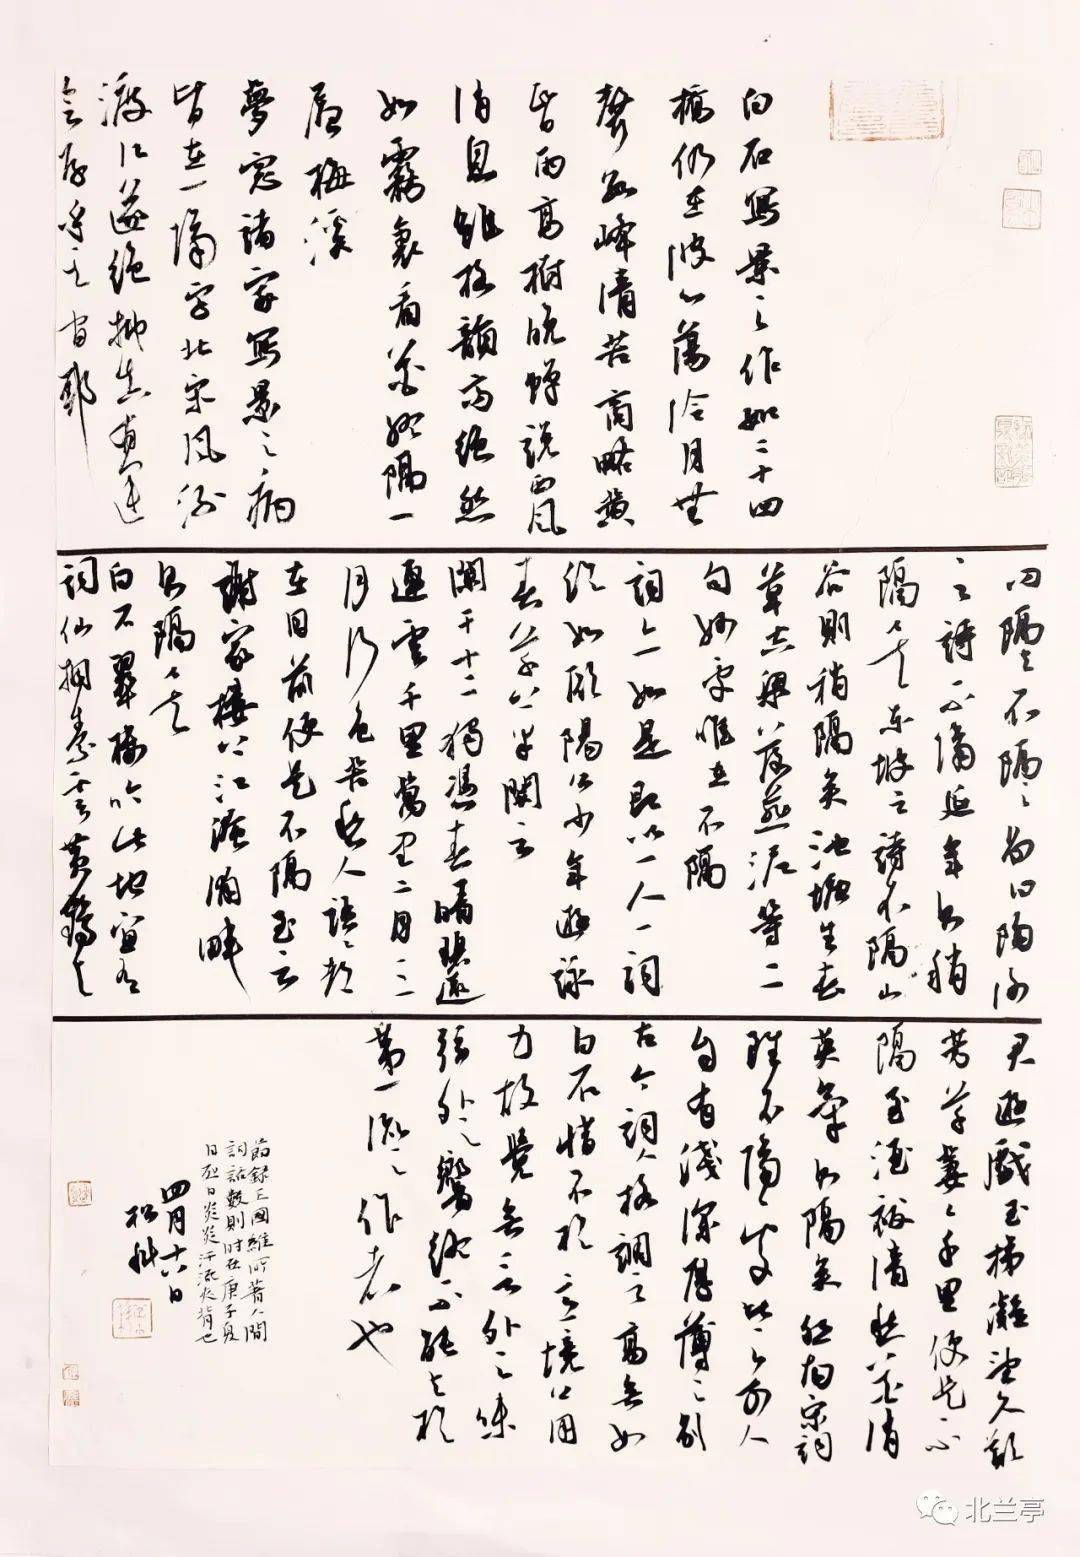 白石寫景之作如二十四
橋仍在波心蕩冷月無
聲數峰清苦商略黃
昏雨高樹晚蟬說西風
消息雖格韻高絕然
如霧裏看花終隔一
層梅溪
夢窗諸家寫景之病
皆在一隔字北宋風流
渡江遂絕抑真有運
會存乎其間耶
問隔與不隔之別曰陶謝
之詩不隔延年則稍
隔矣東坡之詩不隔山
谷則稍隔矣池塘生春
草空梁落燕泥等二
句妙處唯在不隔
詞亦如是即以一人一詞
論如歐陽公少年遊詠
春草上半闋云
闌干十二獨憑春晴碧遠
連雲千里萬里二月三
月行色苦愁人語語都
在目前便是不隔至云
謝家樓上江淹浦畔
則隔矣
白石翠樓吟此地宜有
詞仙擁素雲黃鶴與
君遊戲玉梯凝望久歎
芳草萋萋千里便是不
隔至酒祓清愁花消
英氣則隔矣然南宋詞
雖不隔處比之前人
自有淺深厚薄之別
古今詞人格調之高無如
白石惜不於意境上用
力故覺無言外之味
弦外之響終不能與於
第一流之作者也
節錄王國維所著人間
詞話數則時在庚子夏
日烈日炎炎汗流夾背也
四月十六日
北兰亭